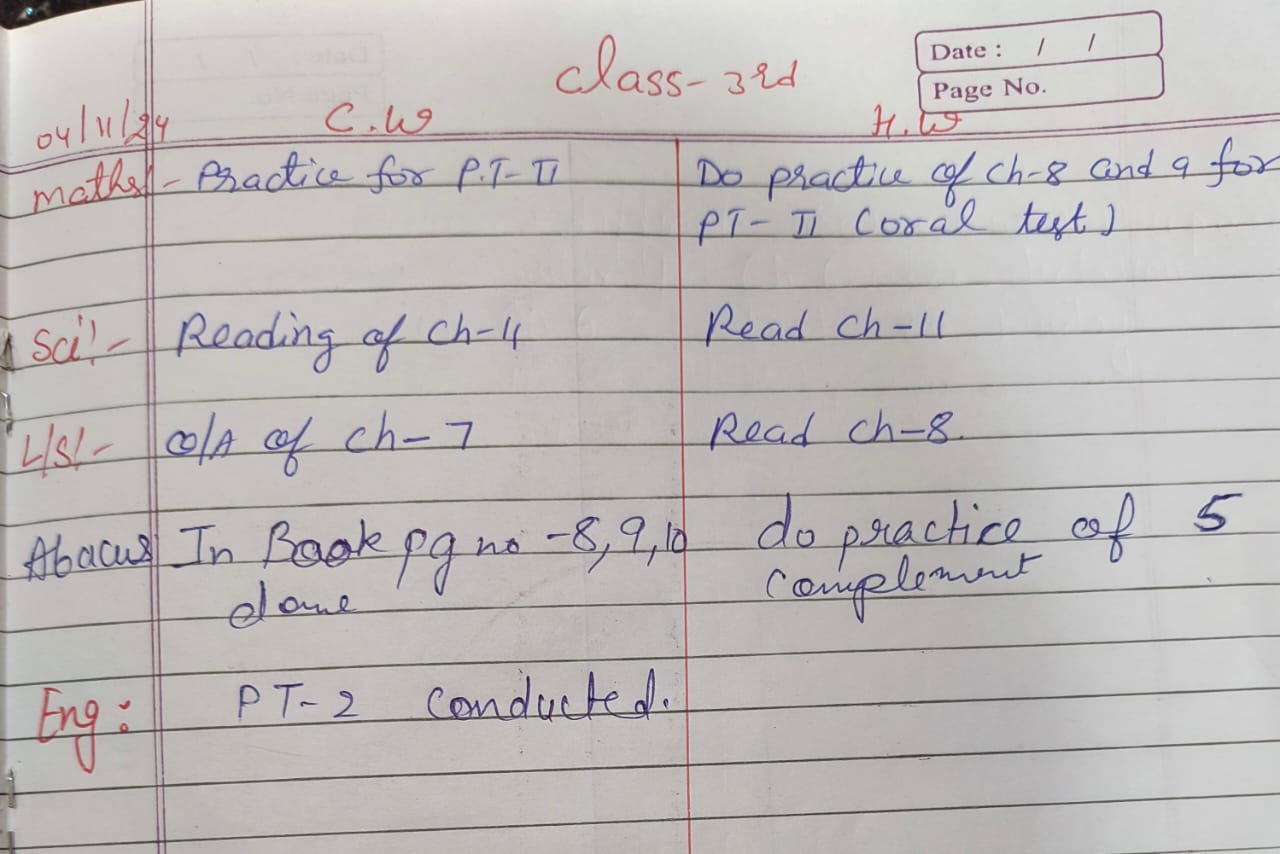 Class-3rd
Date : / /
Page No.
04/11/24 C.W H.W
Maths - Practice for P.T-II Do practice of ch-8 and 9 for
PT- II (oral test)
Sci!- Reading of ch-11 Read ch-11
Q/A of ch-7 Read ch-8.
Abacus In Book pg no -8,9,10 do practice of 5
done complement
Eng: PT-2 conducted.